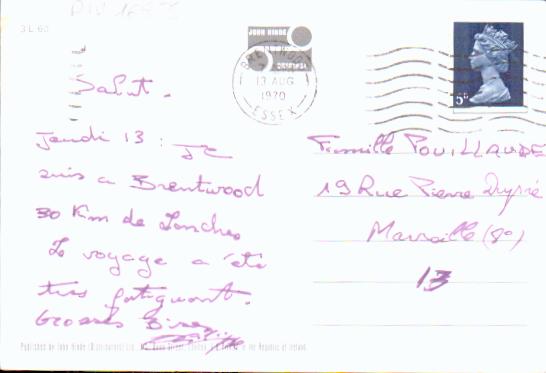 3L60
JOHN HINDE
ORIGINAL
BRENTWOOD
13 AUG
1970
ESSEX
5D
Salut.
Jeudi 13 : Je
suis a Brentwood
30 Km de Londres
Le voyage a été
très fatiguant.
Grosses Bises
Famille POUILLAUDE
19 Rue Pierre Dupré
Marseille (8e)
13
Published by John Hinde (Distributors) Ltd.,
in the Republic of Ireland